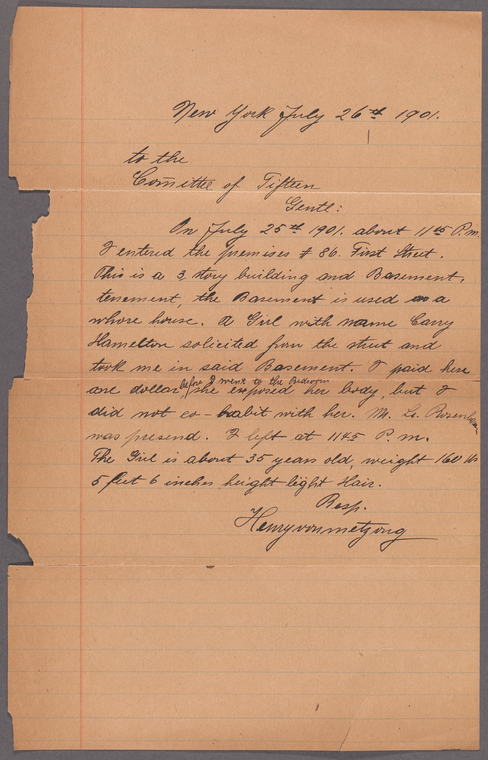 New York July 26th 1901.
to the
Comittee of Fifteen
Gentl:
On July 25th 1901. about 1115 P.m.
I entered the premises # 86. First Street.
This is a 3 story building and Basement,
tenement, the Basement is used as a
whore house. A Girl with name Carry
Hamelton solicited from the street and
took me in said Basement. I paid here
one dollar, before I went to the Bedroom she exposed her body, but I
did not co-habit with her. M. Ls. Rosenbaum
was presend. I left at 1145 P.m.
The Girl is about 35 years old, weight 160 lbs
5 feet 6 inches height light Hair.
Resp.
Henry von metzong